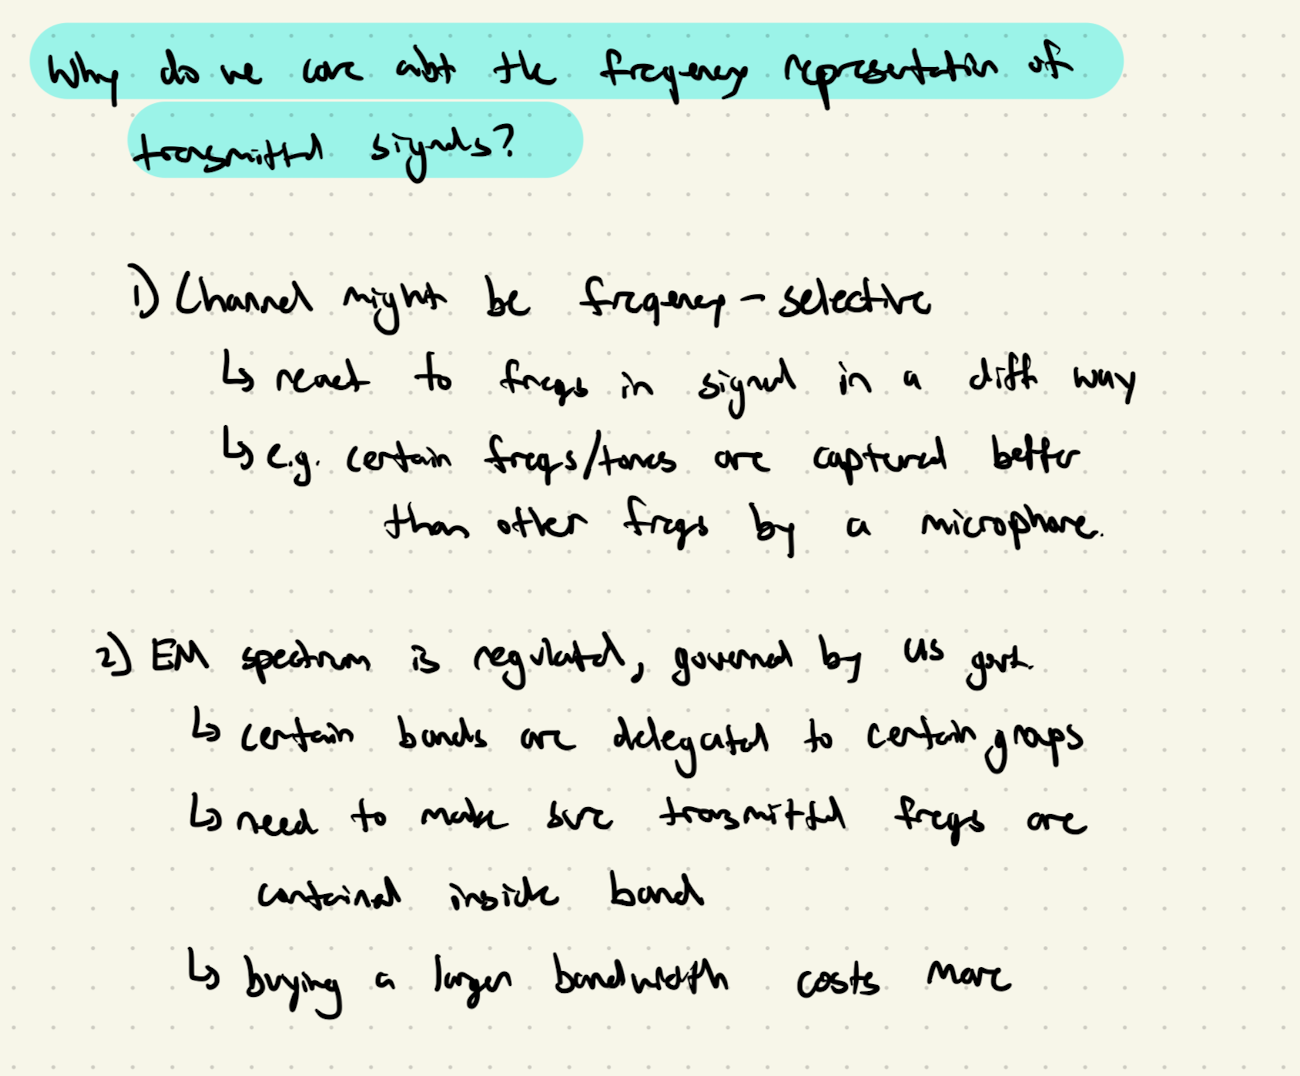 Why do we care abt the frequency representation of
transmitted signals?
1) Channel might be frequency-selective
↳ react to freqs in signal in a diff way
↳ e.g. certain freqs/tones are captured better
than other freqs by a microphone.
2) EM spectrum is regulated, governed by US govt.
↳ certain bands are delegated to certain groups
↳ need to make sure transmitted freqs are
contained inside band
↳ buying a larger bandwidth costs more